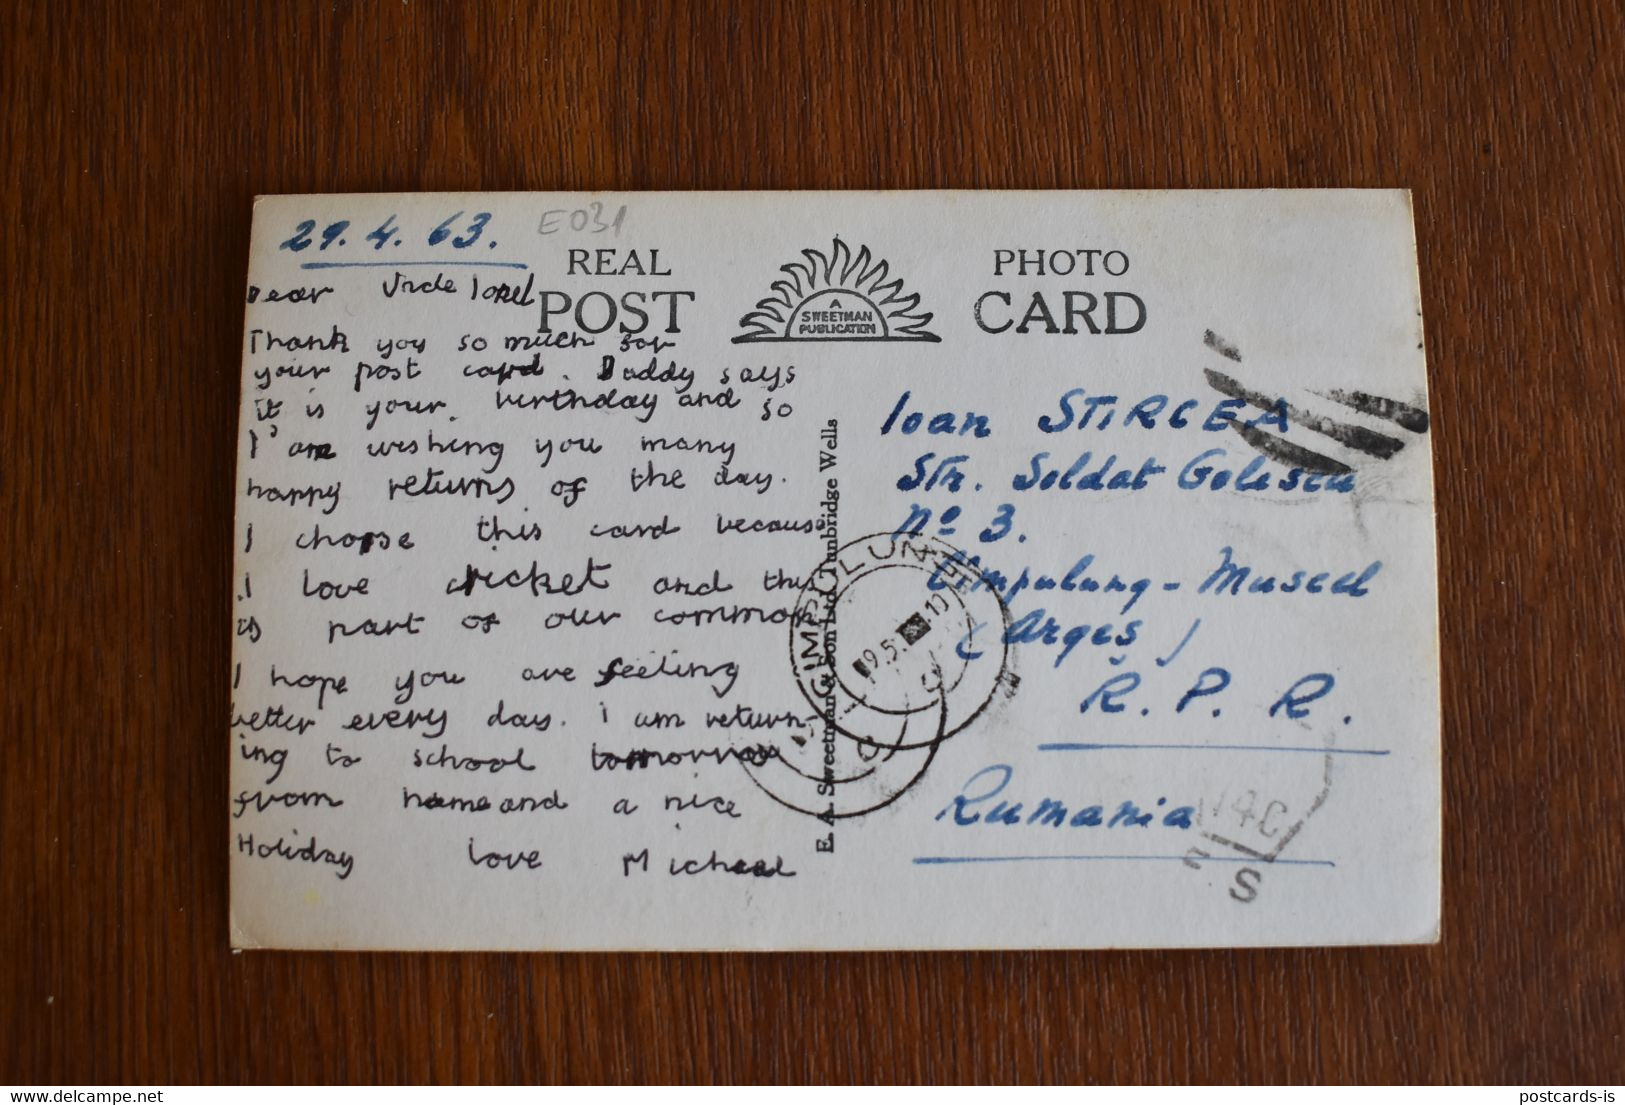 29.4.63.
E031
REAL PHOTO
POST CARD
A
SWEETMAN
PUBLICATION
Dear Uncle Ionel
Thank you so much for
your post card. Daddy says
it is your birthday and so
I am wishing you many
happy returns of the day.
I choose this card because
I love cricket and this
is part of our common
I hope you are feeling
better every day. I am return-
ing to school tomorrow
from home and a nice
Holiday love Michael
E. A. Sweetman & Son Ltd. Tunbridge Wells
Ioan STIRCEA
Str. Soldat Golescu
No 3.
Cîmpulung - Muscel
(Argeș)
R. P. R.
Rumania
CIMPULUNG
19.5.
114C
S
postcards-is.delcampe.net
postcards-is